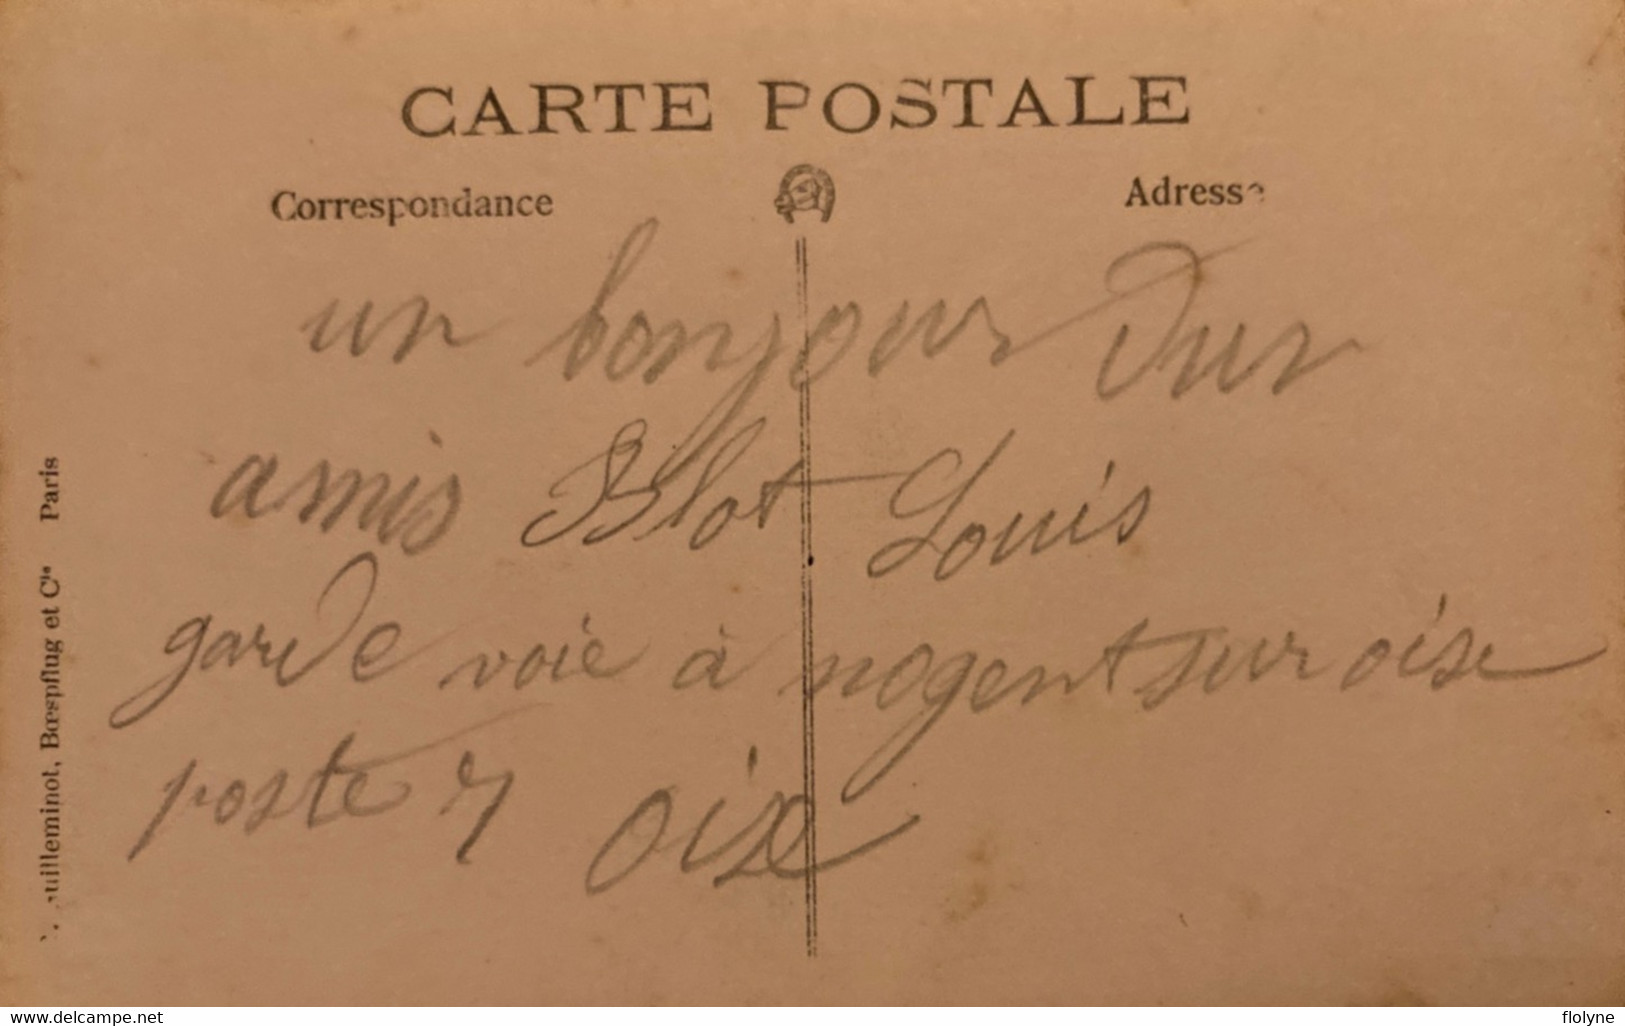 CARTE POSTALE
Correspondance
Adresse
un bonjour Dun
amis Blot Louis
garde voie à nogent sur oise
poste 7 oise
uilleminot, Bœspflug et Cie Paris
www.delcampe.net
flolyne